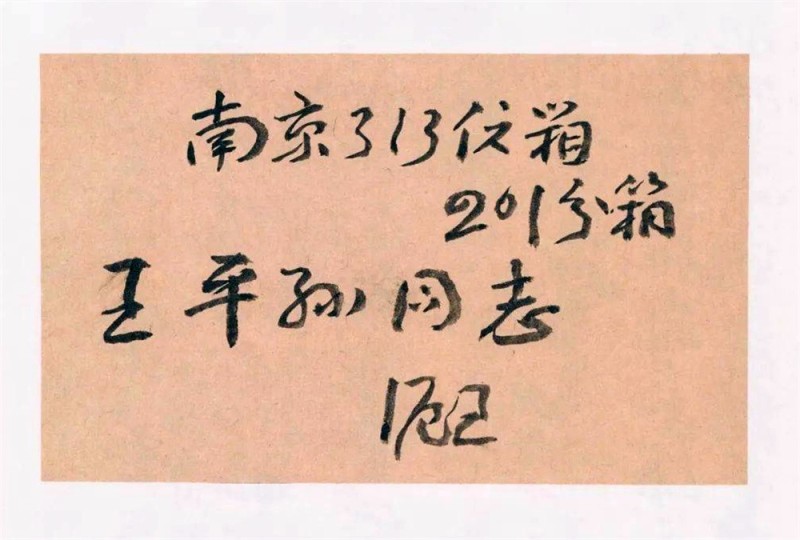 南京313信箱
201分箱
王平孙同志